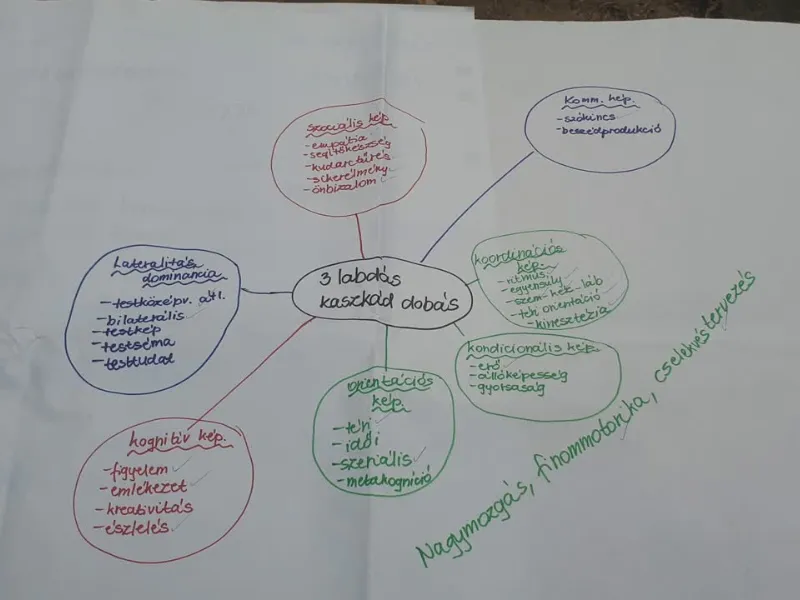 Szociális kép.
- empátia
- segítőkészség
- kudarctűrés
- sikerélmény
- önbizalom
Komm. kép.
- szókincs
- beszédprodukció
Lateralitás
dominancia
- testközépv. átl.
- bilaterális
- testkép
- testséma
- testtudat
3 labdás
kaszkád dobás
koordinációs
kép.
- ritmus
- egyensúly
- szem-kéz-láb
- téri orientáció
- kinesztézia
kondicionális kép.
- erő
- állóképesség
- gyorsaság
orientációs
kép.
- téri
- idői
- szeriális
- metakogníció
kognitív kép.
- figyelem
- emlékezet
- kreativitás
- észlelés
Nagymozgás, finommotorika, cselekvéstervezés